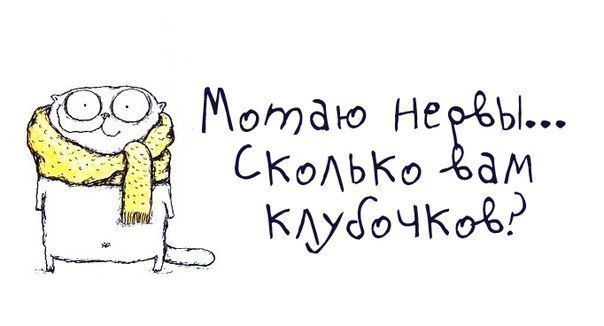 Мотаю нервы...
Сколько вам
клубочков?